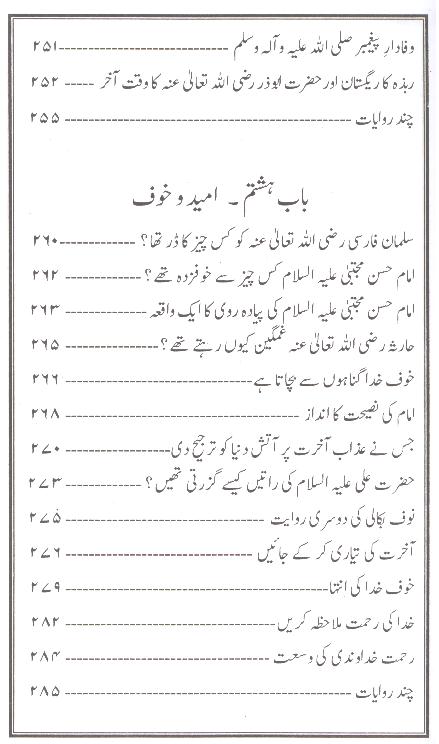 وفادارِ پیغمبر صلی اللہ علیہ وآلہ وسلم ------------------------- ۲۵۱
ربذہ کا ریگستان اور حضرت ابوذر رضی اللہ تعالیٰ عنہ کا وقت آخر ----- ۲۵۲
چند روایات ------------------------------------------ ۲۵۵
باب ہشتم ۔ امید و خوف
سلمان فارسی رضی اللہ تعالیٰ عنہ کو کس چیز کا ڈر تھا؟ --------------- ۲۶۰
امام حسن مجتبیٰ علیہ السلام کس چیز سے خوفزدہ تھے؟ -------------- ۲۶۲
امام حسن مجتبیٰ علیہ السلام کی پیادہ روی کا ایک واقعہ ------------- ۲۶۳
حارثہ رضی اللہ تعالیٰ عنہ غمگین کیوں رہتے تھے؟ -------------- ۲۶۵
خوف خدا گناہوں سے بچاتا ہے ---------------------------- ۲۶۶
امام کی نصیحت کا انداز ----------------------------------- ۲۶۸
جس نے عذاب آخرت پر آتش دنیا کو ترجیح دی -------------------- ۲۷۰
حضرت علی علیہ السلام کی راتیں کیسے گزرتی تھیں؟ --------------- ۲۷۳
نوف بکالی کی دوسری روایت ----------------------------- ۲۷۵
آخرت کی تیاری کر کے جائیں ---------------------------- ۲۷۶
خوف خدا کی انتہا ---------------------------------------- ۲۷۹
خدا کی رحمت ملاحظہ کریں ------------------------------- ۲۸۲
رحمت خداوندی کی وسعت ------------------------------ ۲۸۴
چند روایات ------------------------------------------ ۲۸۵